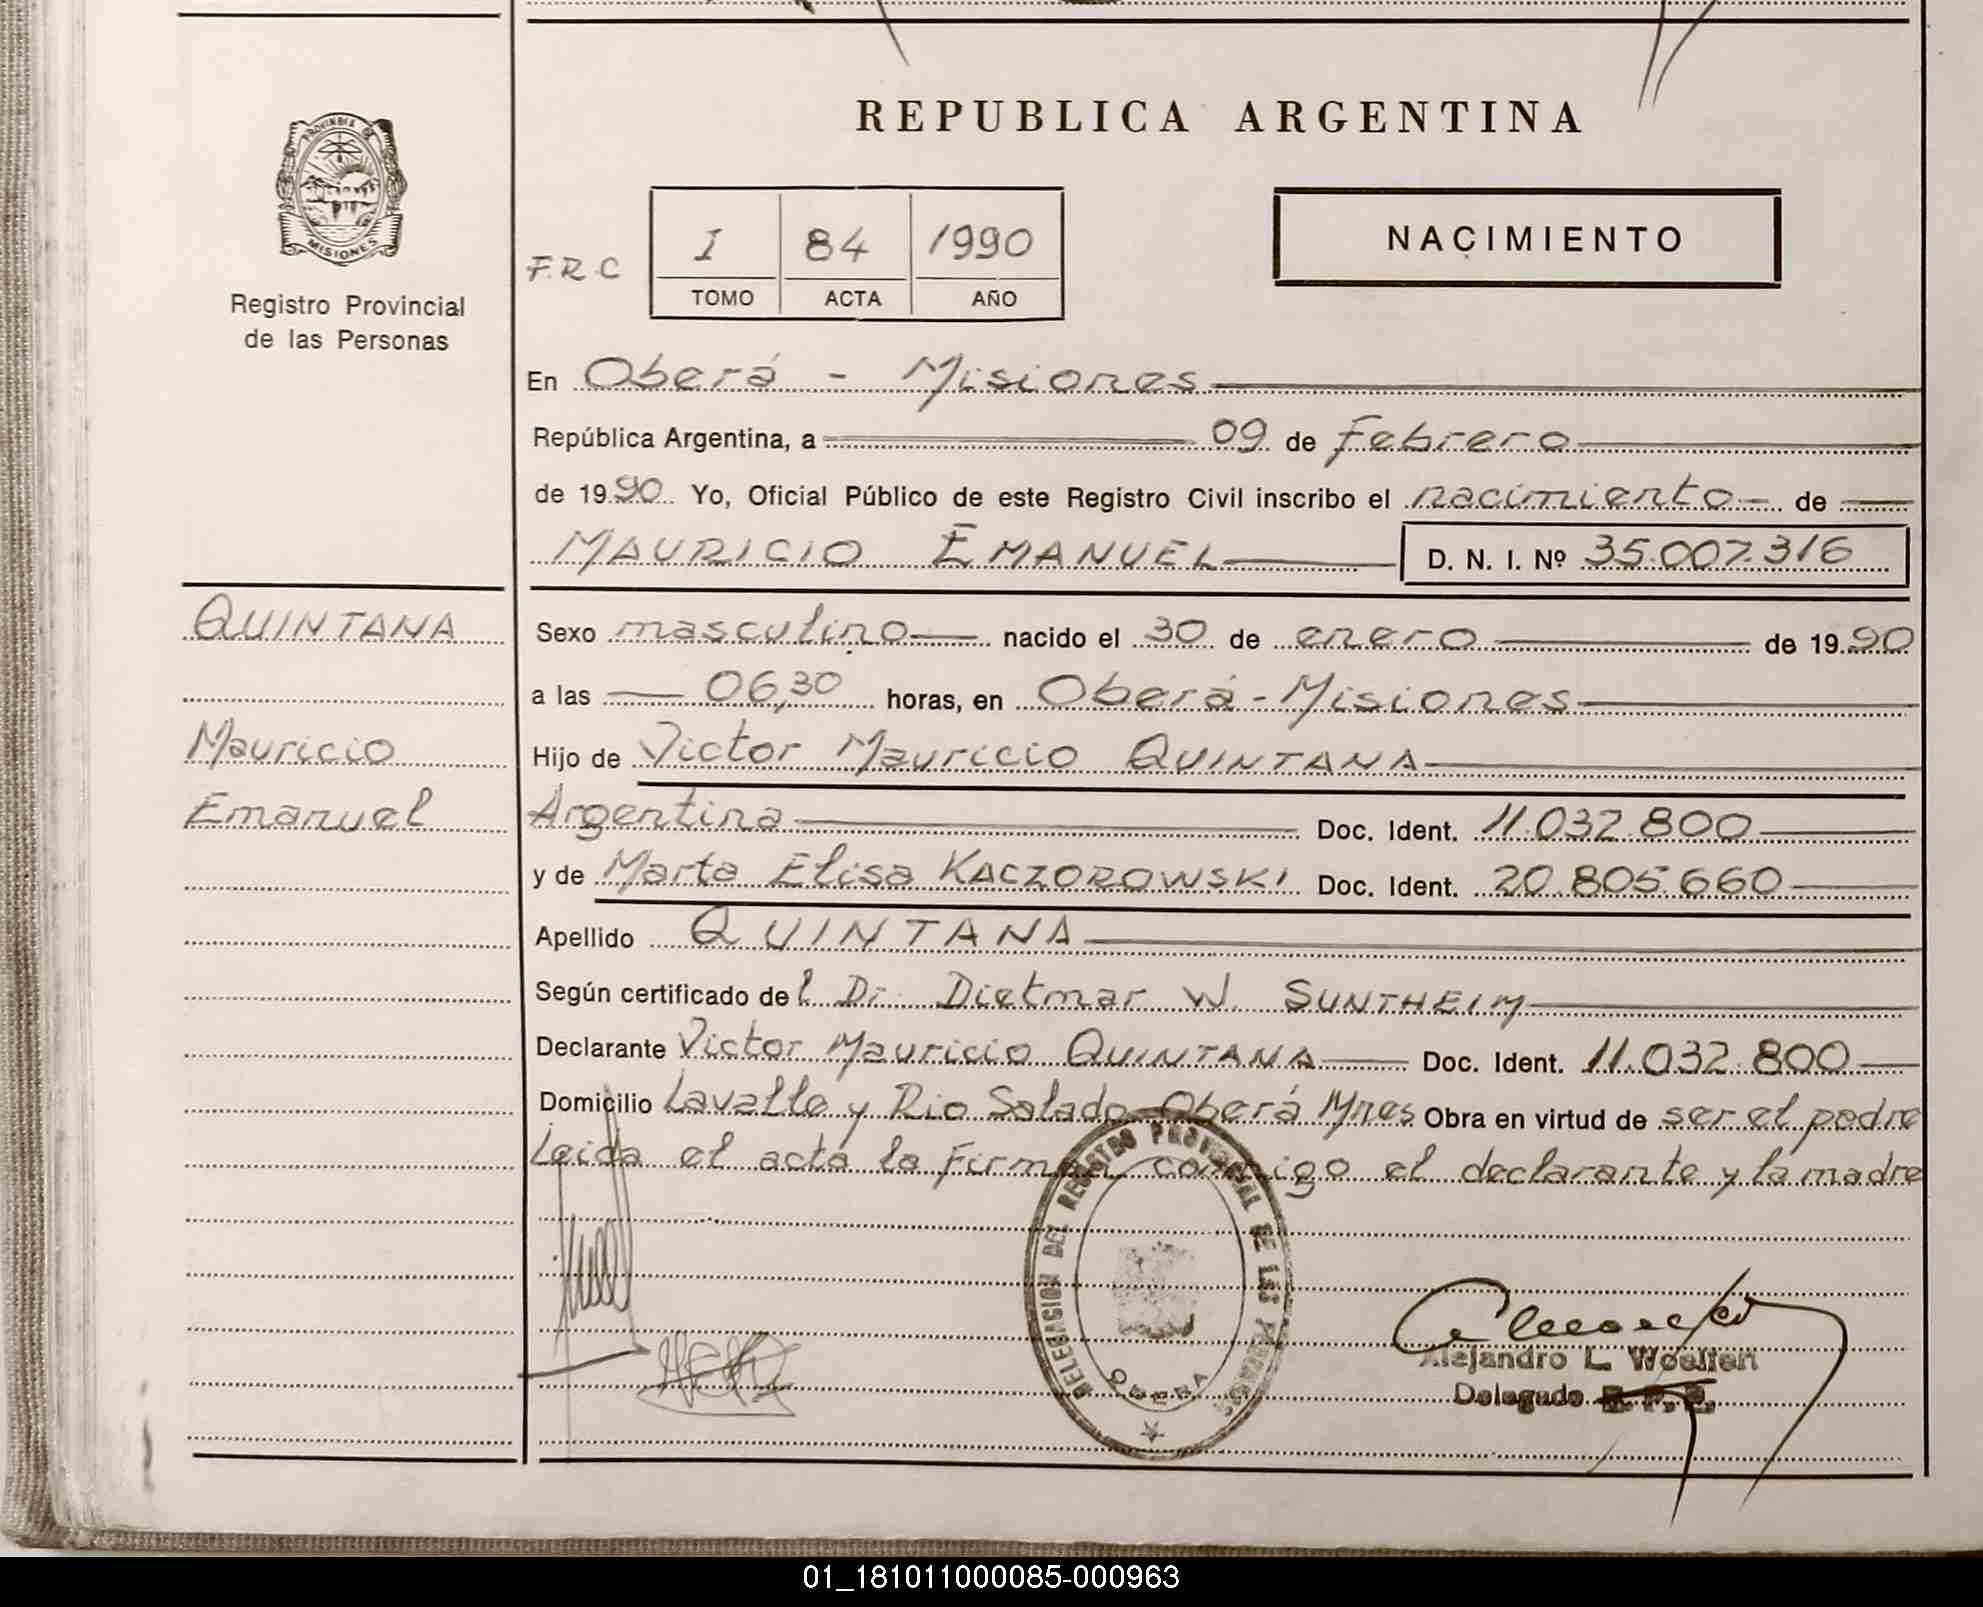 REPUBLICA ARGENTINA
PROVINCIA DE
MISIONES
Registro Provincial
de las Personas
F.R.C
I 84 1990
TOMO ACTA AÑO
NACIMIENTO
En Oberá - Misiones
República Argentina, a 09 de Febrero
de 1990 Yo, Oficial Público de este Registro Civil inscribo el nacimiento de
MAURICIO EMANUEL D. N. I. Nº 35.007.316
QUINTANA
Mauricio
Emanuel
Sexo masculino nacido el 30 de enero de 1990
a las 06,30 horas, en Oberá - Misiones
Hijo de Victor Mauricio QUINTANA
Argentina Doc. Ident. 11.032.800
y de Marta Elisa KACZOROWSKI Doc. Ident. 20.805.660
Apellido QUINTANA
Según certificado del Dr. Dietmar W. SUNTHEIM
Declarante Victor Mauricio QUINTANA Doc. Ident. 11.032.800
Domicilio Lavalle y Rio Salado-Oberá Mnes Obra en virtud de ser el padre
Leida el acta la Firman conmigo el declarante y la madre
DELEGACION DEL REGISTRO PROVINCIAL DE LAS PERSONAS
OBERA
Alejandro L.
Delegado R. P. P.
01_181011000085-000963